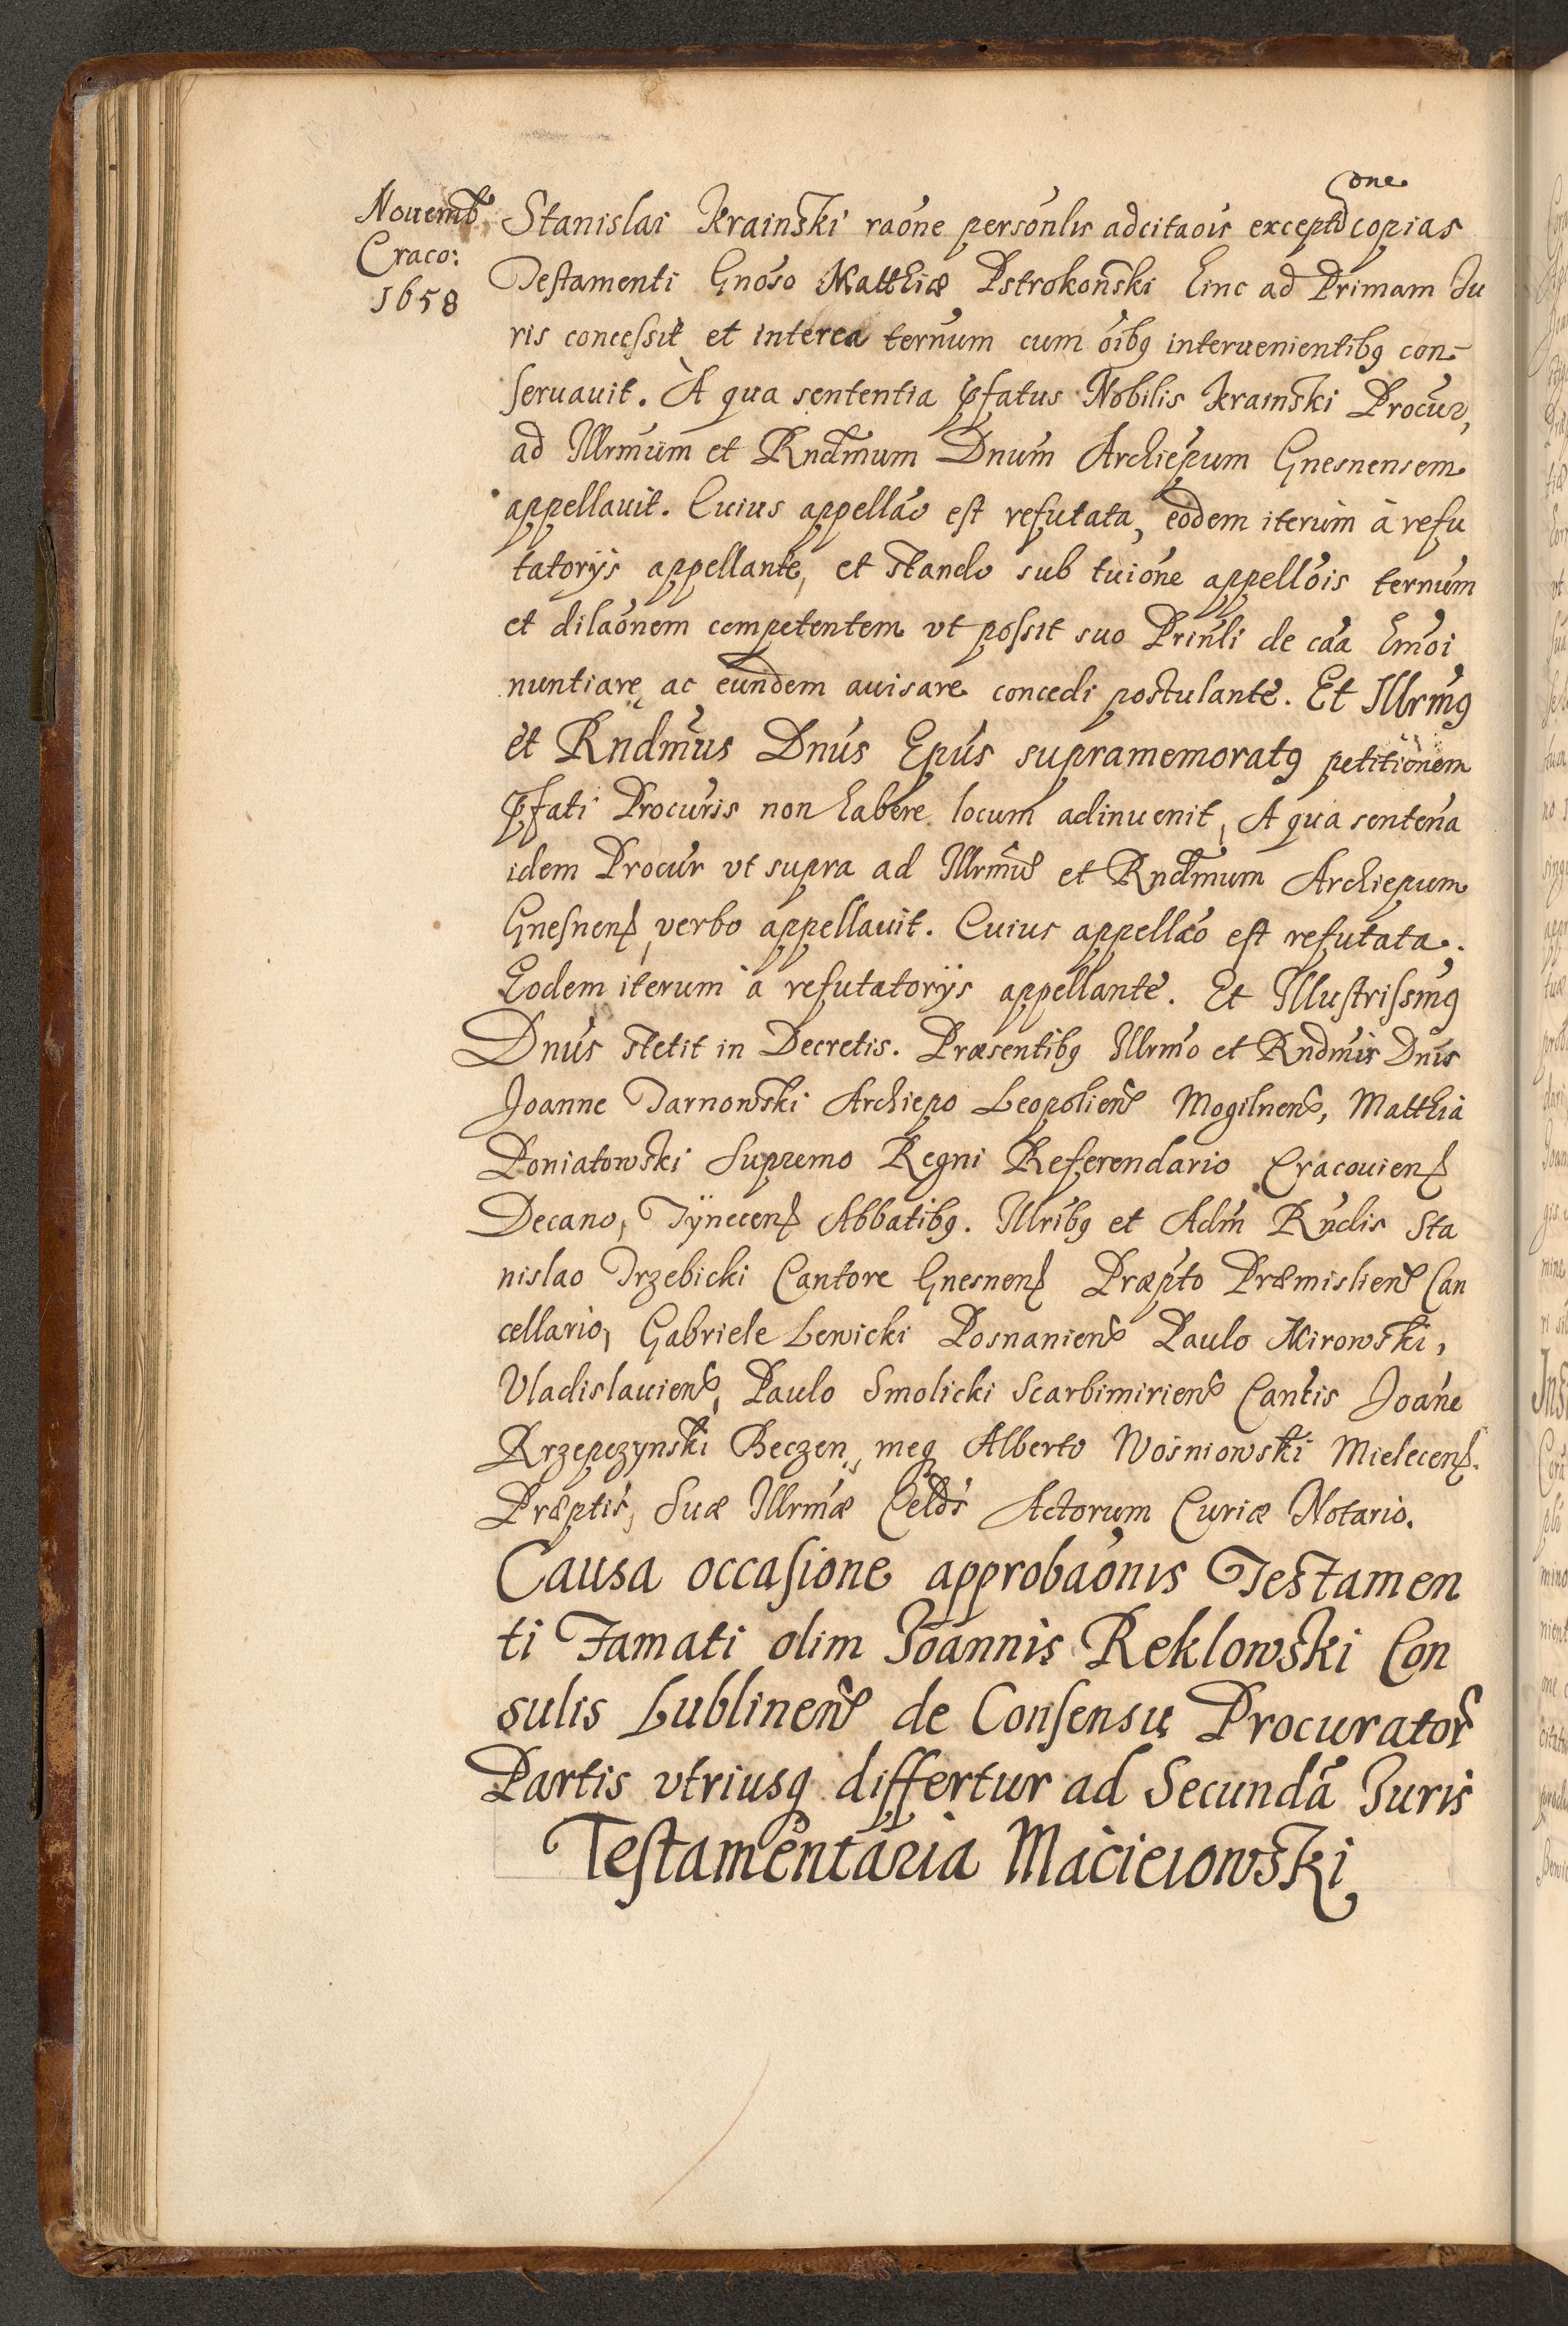 Nouemb
Craco:
1658
one
Stanislai Krainski raone personlis adcitaois except copias
Testamenti Gnoso Matthiæ Pstrokonski hinc ad Primam Iu
ris concessit et interea ternum cum oibꝯ interuenientibꝯ con-
seruauit. A qua sententia p̄fatus Nobilis Krainski Procur,
ad Illrmum et Rndmum Dnum Archiepum Gnesnensem
appellauit. Cuius appellao est refutata, eodem iterum à refu
tatorijs appellante, et stando sub tuione appellois ternum
et dilaonem competentem vt possit suo Prinli de caa hmoi
nuntiare ac eundem auisare concedi postulante. Et Illrmꝯ
et Rndmus Dnus Epus supramemoratꝯ petitionem
p̄fati Procuris non habere locum adinuenit, A qua sentena
idem Procur vt supra ad Illrmū et Rndmum Archiepum
Gnesnens, verbo appellauit. Cuius appellao est refutata.
Eodem iterum à refutatorijs appellante. Et Illustrissmꝯ
Dnus stetit in Decretis. Præsentibꝯ Illrmo et Rndmis Dnis
Joanne Tarnowski Archiepo Leopoliens Mogilnens, Matthia
Poniatowski Supremo Regni Referendario Cracouiens
Decano, Tÿnecens Abbatibꝯ. Illribꝯ et Adm Rndis Sta
nislao Trzebicki Cantore Gnesnens Præpto Præmisliens Can
cellario, Gabriele Lewicki Posnaniens Paulo Mirowski,
Vladislauiens, Paulo Smolicki Scarbimiriens Cantis Joane
Krzepczynski Beczen, meqꝫ Alberto Wosniowski Mielecens.
Præptis, Suæ Illrmæ Celds Actorum Curiæ Notario.
Causa occasione approbaonis Testamen
ti Famati olim Joannis Reklowski Con
sulis Lublinens de Consensu Procurator
Partis vtriusqꝫ differtur ad Secundā Iuris
Testamentaria Macieiowski